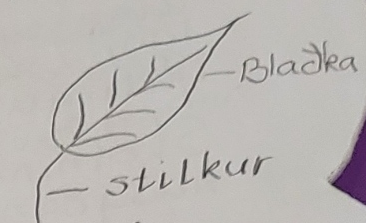 Blaðka
stilkur